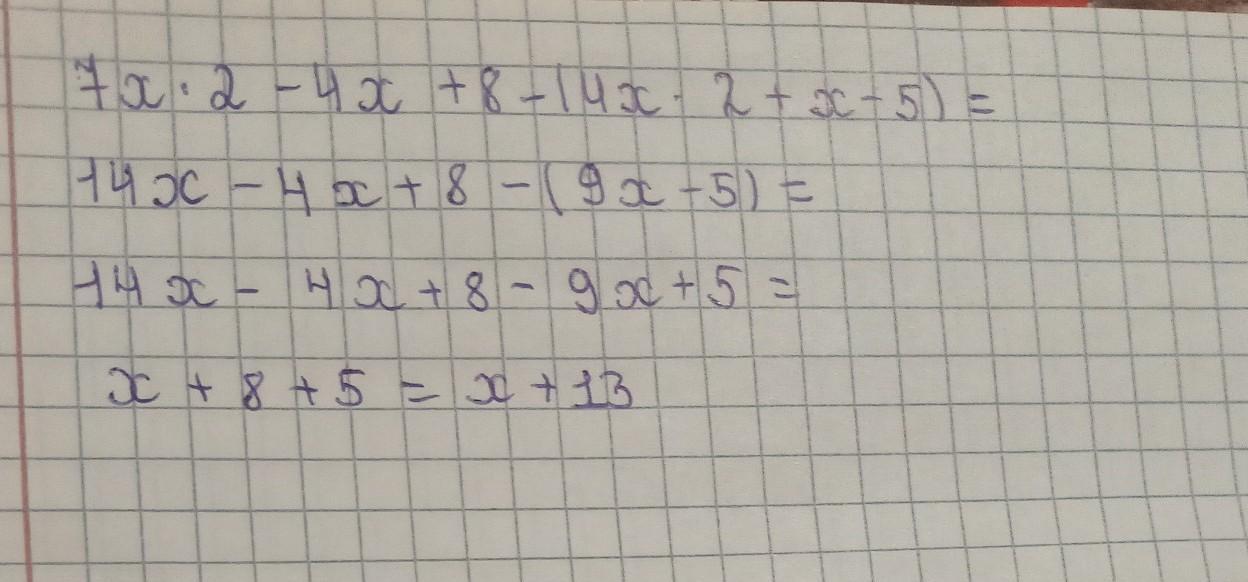 7x · 2 - 4x + 8 - (4x · 2 + x - 5) =
14x - 4x + 8 - (9x - 5) =
14x - 4x + 8 - 9x + 5 =
x + 8 + 5 = x + 13